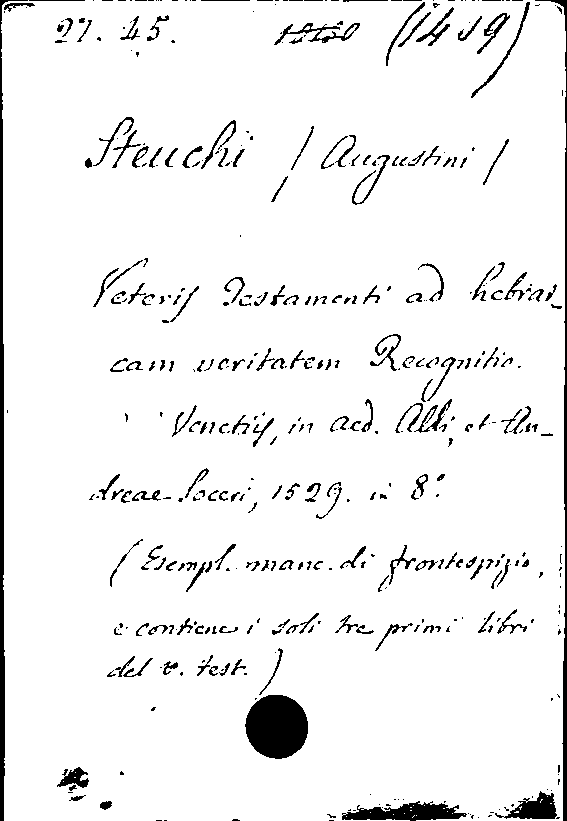 27. 45. (1419)
Steuchi / Augustini /
Veteris Testamenti ad hebrai_
cam veritatem Recognitio.
Venetiis, in aed. Aldi, et An_
dreae Soceri, 1529. in 8°.
(Esempl. manc. di frontespizio,
e contiene i soli tre primi libri
del v. test.)